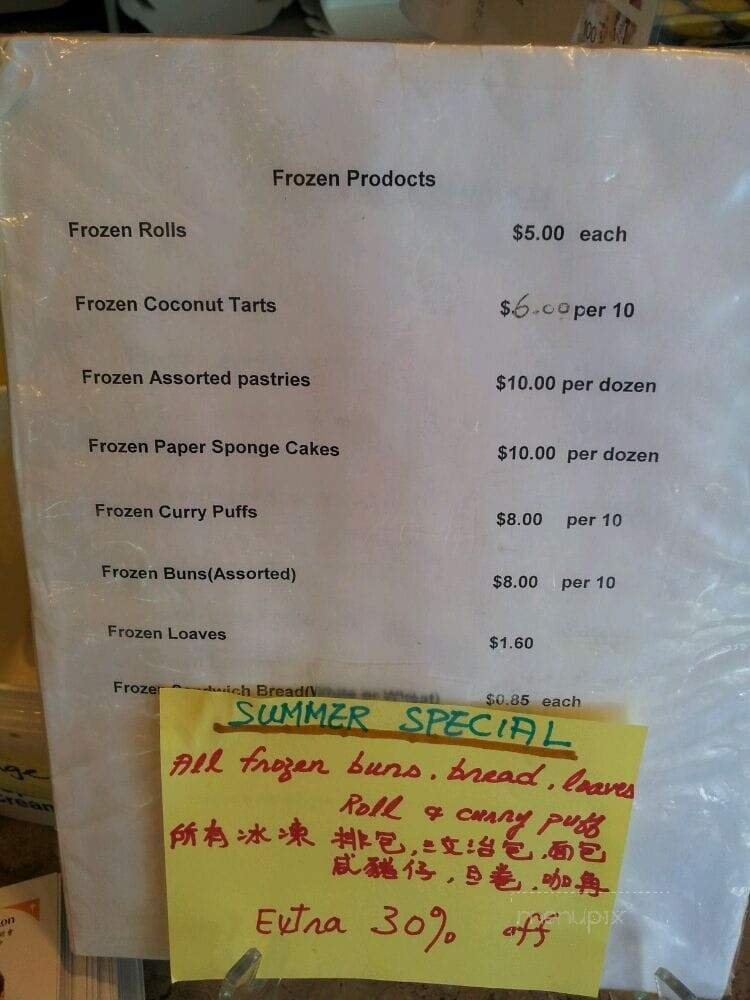 Frozen Prodocts
Frozen Rolls $5.00 each
Frozen Coconut Tarts $6.00 per 10
Frozen Assorted pastries $10.00 per dozen
Frozen Paper Sponge Cakes $10.00 per dozen
Frozen Curry Puffs $8.00 per 10
Frozen Buns(Assorted) $8.00 per 10
Frozen Loaves $1.60
Frozen Sandwich Bread(White or Wheat) $0.85 each
SUMMER SPECIAL
All frozen buns, bread, loaves
Roll & curry puff
所有冰凍 排包,三文治包,面包
咸豬仔,旦卷,咖角
Extra 30% off
menupix